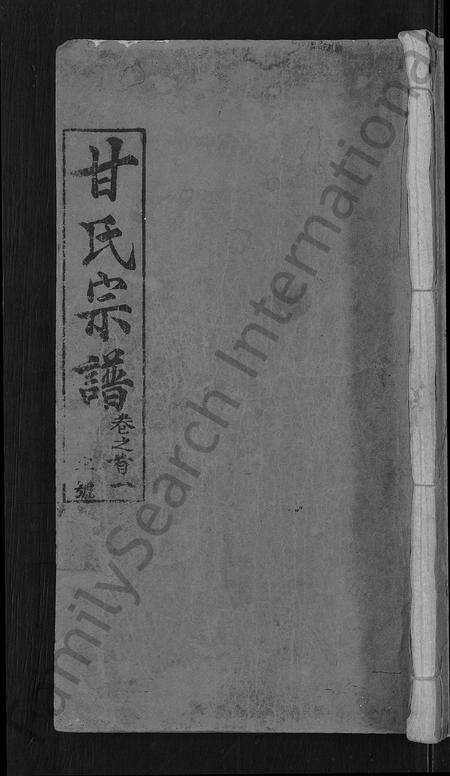 甘氏宗譜
卷之首一
號
FamilySearch International